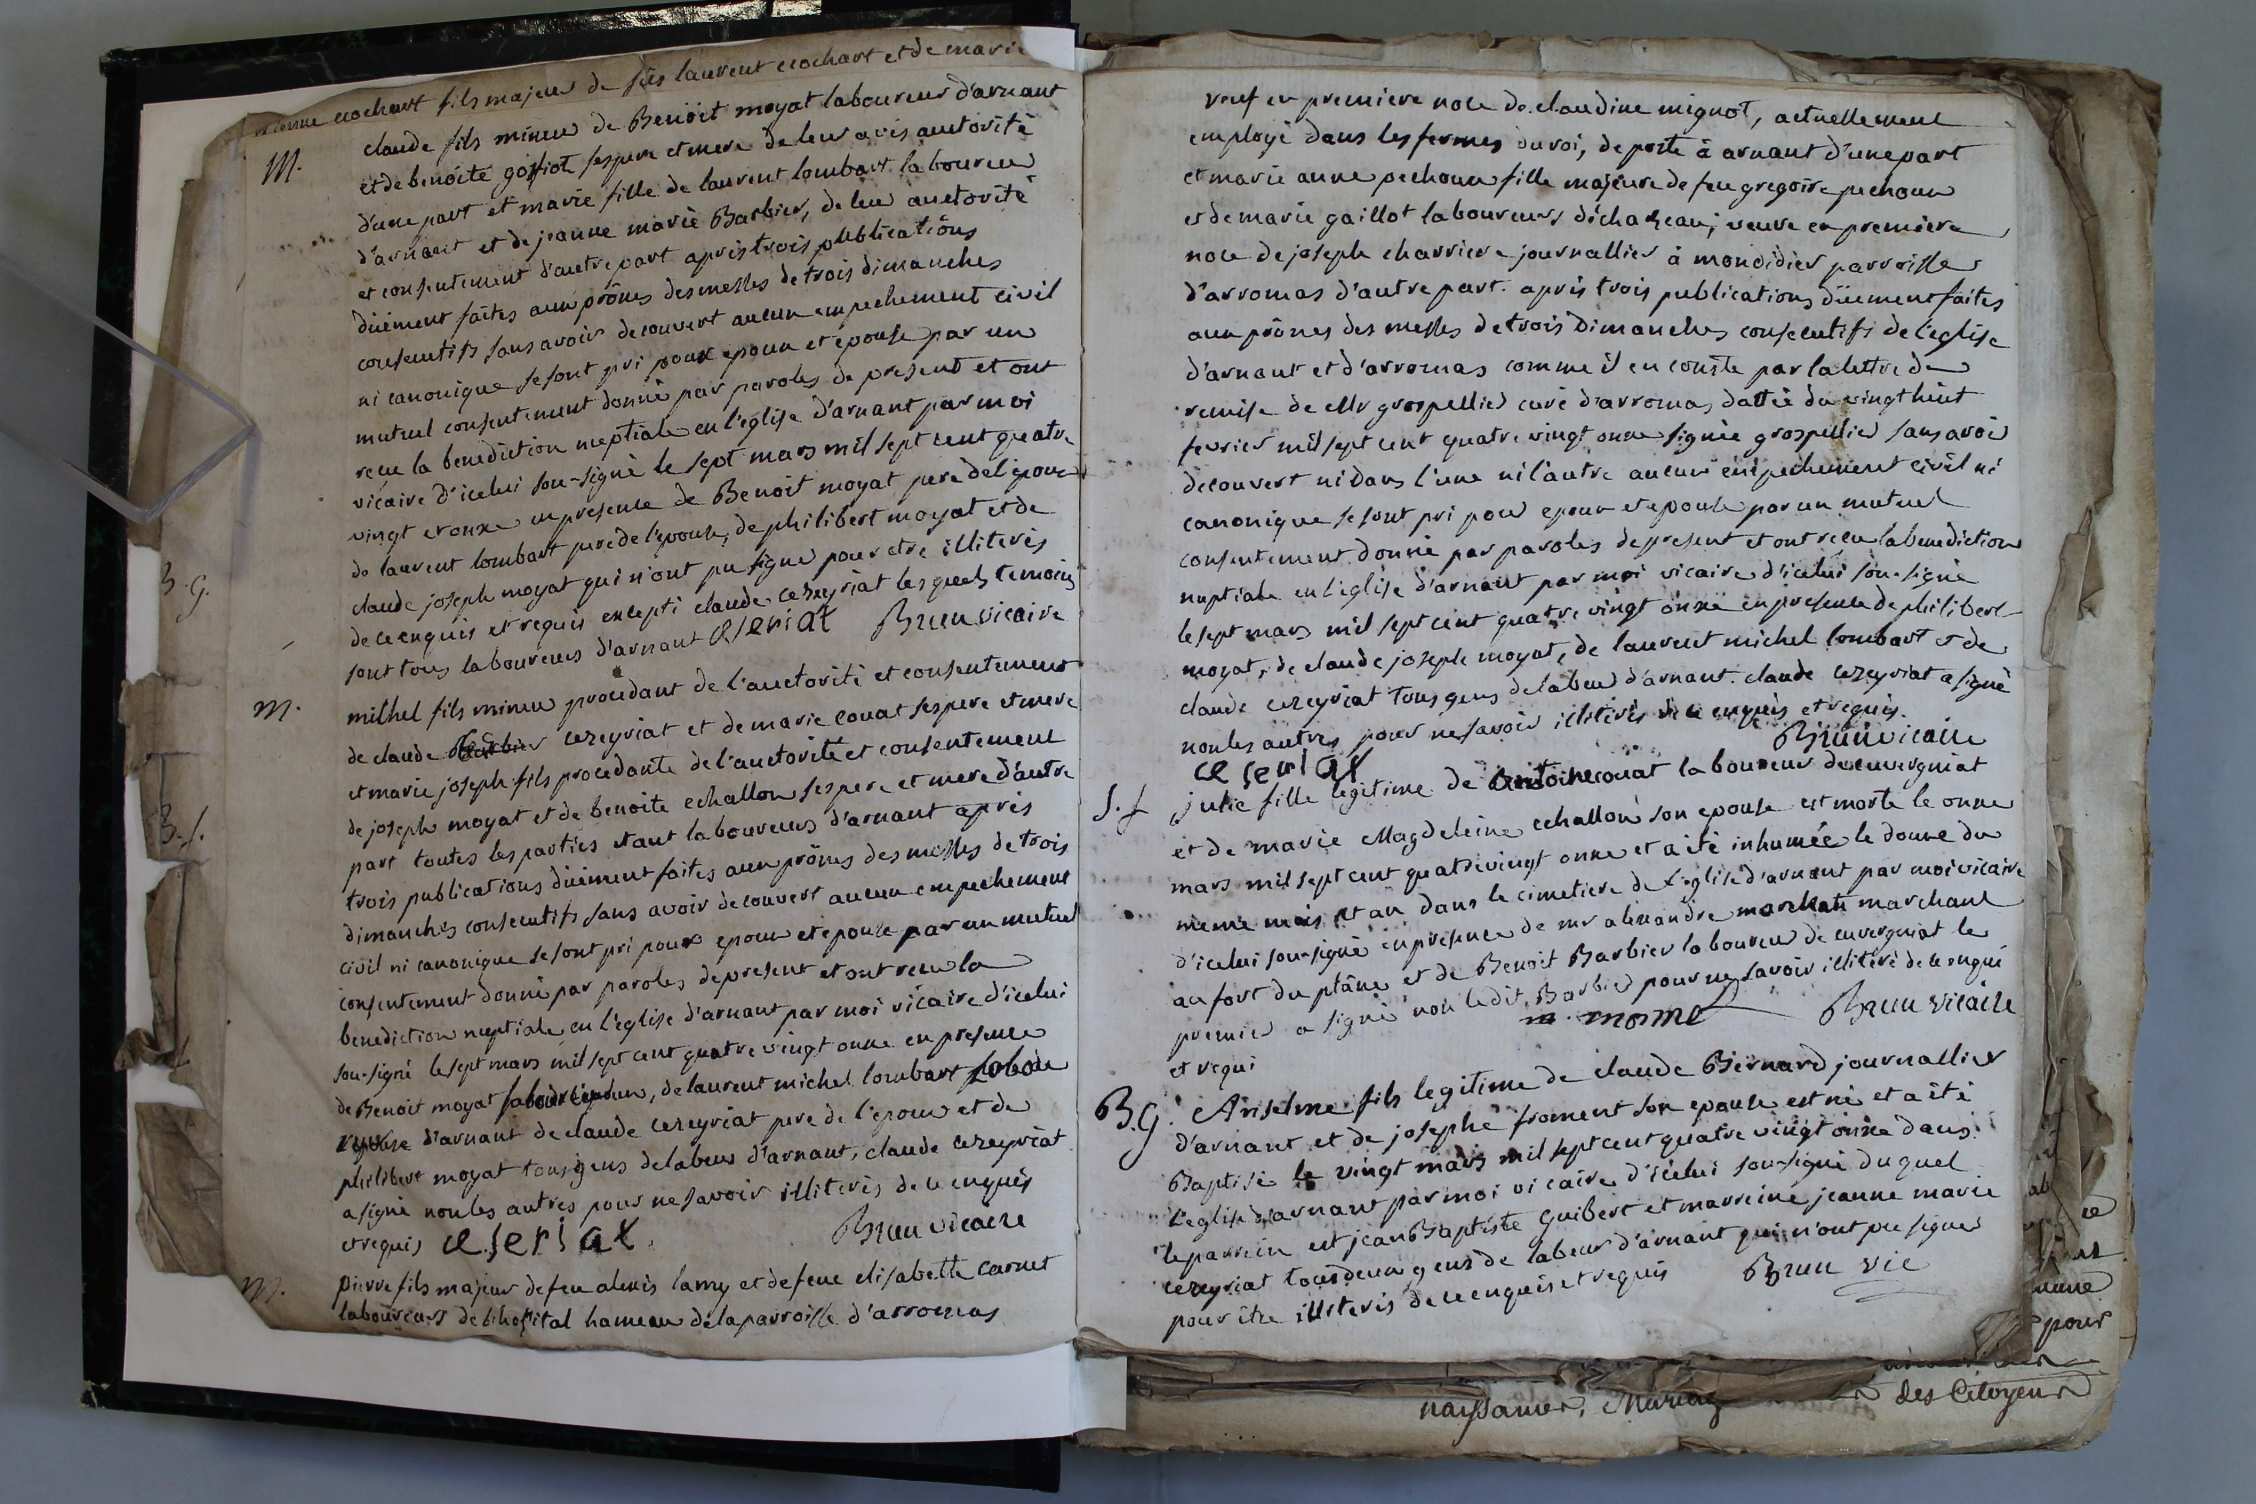 crochart fils majeur de feüs laurent crochart et de marie
M.
claude fils mineur de Benöit moyat laboureur d'arnant
et de benoite goyffiot ses pere et mere de leur avis auctorité
d'une part et marie fille de laurent lombart laboureur
d'arnant et de jeanne marie Barbier, de leur auctorité
et consentement d'autre part apris trois publications
düement faites aux prônes des messes de trois dimanches
consecutifs sans avoir decouvert aucun empechement civil
ni canonique se sont pri pour epoux et epouse par un
mutuel consentement donné par paroles de present et ont
recu la benediction nuptiale en l'eglise d'arnant par moi
vicaire d'icelui sou-signé le sept mars mil sept cent quatre
vingt et onze en presence de Benoit moyat pere de l'epoux
de laurent lombart pere de l'epouse, de philibert moyat et de
claude joseph moyat qui n'ont pu signé pour etre illiterés
de ce enquis et requis excepti claude cezeyriat les quels temoins
sont tous laboureurs d'arnant ceseriat Brun vicaire
M.
mithel fils mineur procedant de l'auctorité et consentement
de claude cezeyriat et de marie couat ses pere et mere
et marie joseph fils procedante de l'auctorité et consentement
de joseph moyat et de benoite echallon ses pere et mere d'autre
part toutes les parties etant laboureurs d'arnant apris
trois publications düement faites aux prônes des messes de trois
dimanches consecutifs sans avoir decouvert aucun empechement
civil ni canonique se sont pri pour epoux et epouse par un mutuel
consentement donné par paroles de present et ont recu la
benediction nuptiale en l'eglise d'arnant par moi vicaire d'icelui
sou-signé le sept mars mil sept cent quatre vingt onze en presence
de Benoit moyat, de laurent michel lombart
d'arnant de claude cezeyriat pere de l'epoux et de
philibert moyat tous gens de labeur d'arnant, claude cezeyriat
a signé non les autres pour ne savoir illiterés de ce enquis
et requis ceseriat. Brun vicaire
M.
pierre fils majeur de feu alexis lamy et de feue elisabette carnet
laboureurs de l'hopital hameau de la parroisse d'arromas
B. G.
B. f.
veuf en premiere noce de claudine mignot, actuellement
employé dans les fermes du roi, de poste à arnant d'une part
et marie anne pechoux fille majeure de feu gregoire pechoux
et de marie gaillot laboureurs d'echazeau; veuve en premiere
noce de joseph charriere journallier à mondidier parroisse
d'arromas d'autre part. apris trois publications düement faites
aux prônes des messes de trois dimanches consecutifs de l'eglise
d'arnant et d'arromas comme il en conste par la lettre de
remise de Mr grospellier curé d'arromas dattée du vingt hüit
fevrier mil sept cent quatre vingt onze signée grospellier sans avoir
decouvert ni dans l'une ni l'autre aucun empechement civil ni
canonique se sont pri pour epoux et epouse par un mutuel
consentement donné par paroles de present et ont recu la benediction
nuptiale en l'eglise d'arnant par moi vicaire d'icelui sou-signé
le sept mars mil sept cent quatre vingt onze en presence de philibert
moyat, de claude joseph moyat, de laurent michel lombart et de
claude cezeyriat tous gens de labeur d'arnant. claude cezeyriat a signé
non les autres pour ne savoir illiterés de ce enquis et requis.
ceseriat Brun vicaire
S. f
julie fille legitime de Antoine couat laboureur de cuvergniat
et de marie Magdeleine echallon son epouse est morte le onze
mars mil sept cent quatre vingt onze et a été inhumée le douze du
meme mois et an dans le cimetiere de l'eglise d'arnant par moi vicaire
d'icelui sou-signé en presence de mr alexandre marchant
au fort du plâne et de Benoit Barbier laboureur de cuvergniat le
premier a signé non ledit Barbier pour ne savoir illiteré de ce enqui
et requi Brun vicaire
B. G.
Anselme fils legitime de claude Bernard journallier
d'arnant et de josephe froment son epouse est né et a été
Baptisé le vingt mars mil sept cent quatre vingt onze dans
l'eglise d'arnant par moi vicaire d'icelui sou-signé du quel
le parrein est jean Baptiste Guibert et marreine jeanne marie
cezeyriat tous deux gens de labeur d'arnant qui n'ont pu signer
pour être illiterés de ce enquis et requis Brun vic
pour
des Citoyens
naissances, Mariag